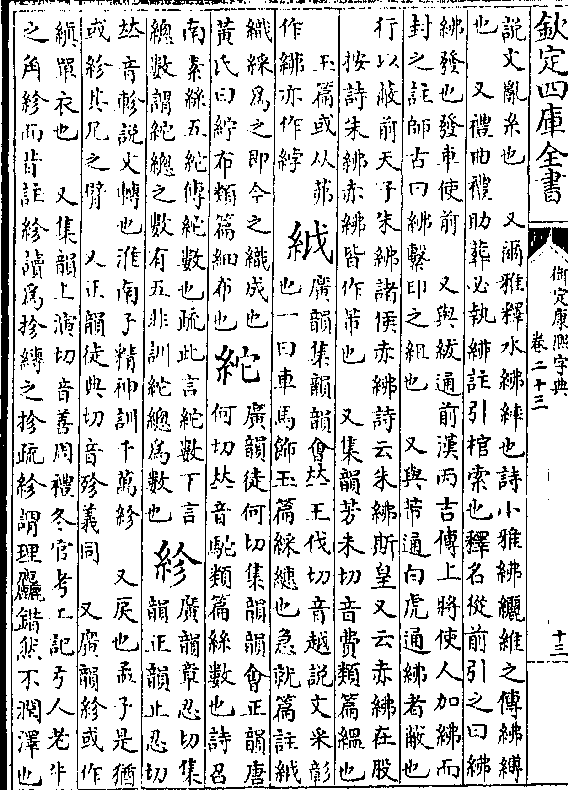 欽定四庫全書
御定康熙字典
卷二十三
十三
說文亂系也　又爾雅釋水紼䋫也詩小雅紼纚維之傳紼繂
也　又禮曲禮助葬必執紼註引棺索也釋名從前引之曰紼
紼發也發車使前　又與紱通前漢丙吉傳上將使人加紼而
封之註師古曰紼繫印之組也　又與芾通白虎通紼者蔽也
行以蔽前天子朱紼諸侯赤紼詩云朱紼斯皇又云赤紼在股
按詩朱紼赤紼皆作芾也　又集韻芳未切音費類篇縕也
玉篇或从茀
作𦃭亦作綍
絨
廣韻集韻韻會𠀤王伐切音越說文采彰
也一曰車馬飾玉篇綵繐也急就篇註絨
織綵爲之即今之織成也
黃氏曰紵布類篇細布也
紽
廣韻徒何切集韻韻會正韻唐
何切𠀤音駝類篇絲數也詩召
南素絲五紽傳紽數也疏此言紽數下言
總數謂紽總之數有五非訓紽總爲數也
紾
廣韻章忍切集
韻正韻止忍切
𠀤音軫說文轉也淮南子精神訓千萬紾　又戾也孟子是猶
或紾其兄之臂　又正韻徒典切音殄義同　又廣韻紾或作
縝單衣也　又集韻上演切音善周禮冬官考工記弓人老牛
之角紾而昔註紾讀爲抮縛之抮疏紾謂理麤錯然不潤澤也